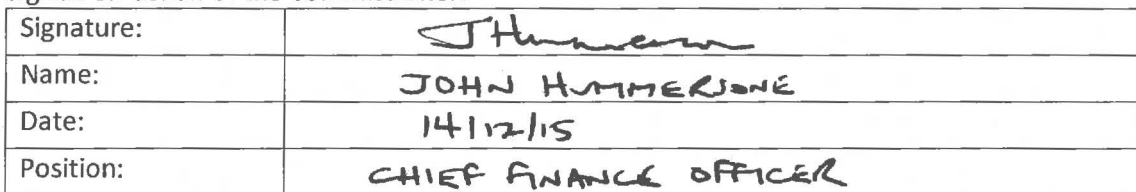 Signature: J Hummersone
Name: JOHN HUMMERSONE
Date: 14/12/15
Position: CHIEF FINANCE OFFICER